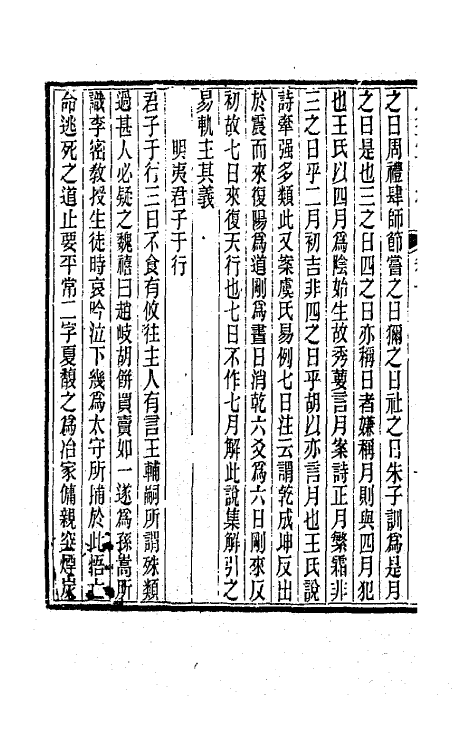 之日周禮肆師嘗之日獮之日社之日朱子訓爲是月
之日是也三之日四之日亦稱日者嫌稱月則與四月犯
也王氏以四月爲陰始生故秀葽言月案詩正月繁霜非
三之日乎二月初吉非四之日乎胡以亦言月也王氏說
詩牽强多類此又案虞氏易例七日注云謂乾成坤反出
於震而來復陽爲道剛爲晝日消乾六爻爲六日剛來反
初故七日來復天行也七日不作七月解此說集解引之
易軌主其義
明夷君子于行
君子于行三日不食有攸往主人有言王輔嗣所謂殊類
過甚人必疑之魏禧曰趙岐胡餅買賣如一遂爲孫嵩所
識李密敎授生徒時哀吟泣下幾爲太守所捕於此悟亡
命逃死之道止要平常二字夏馥之爲冶家傭親突煙炭